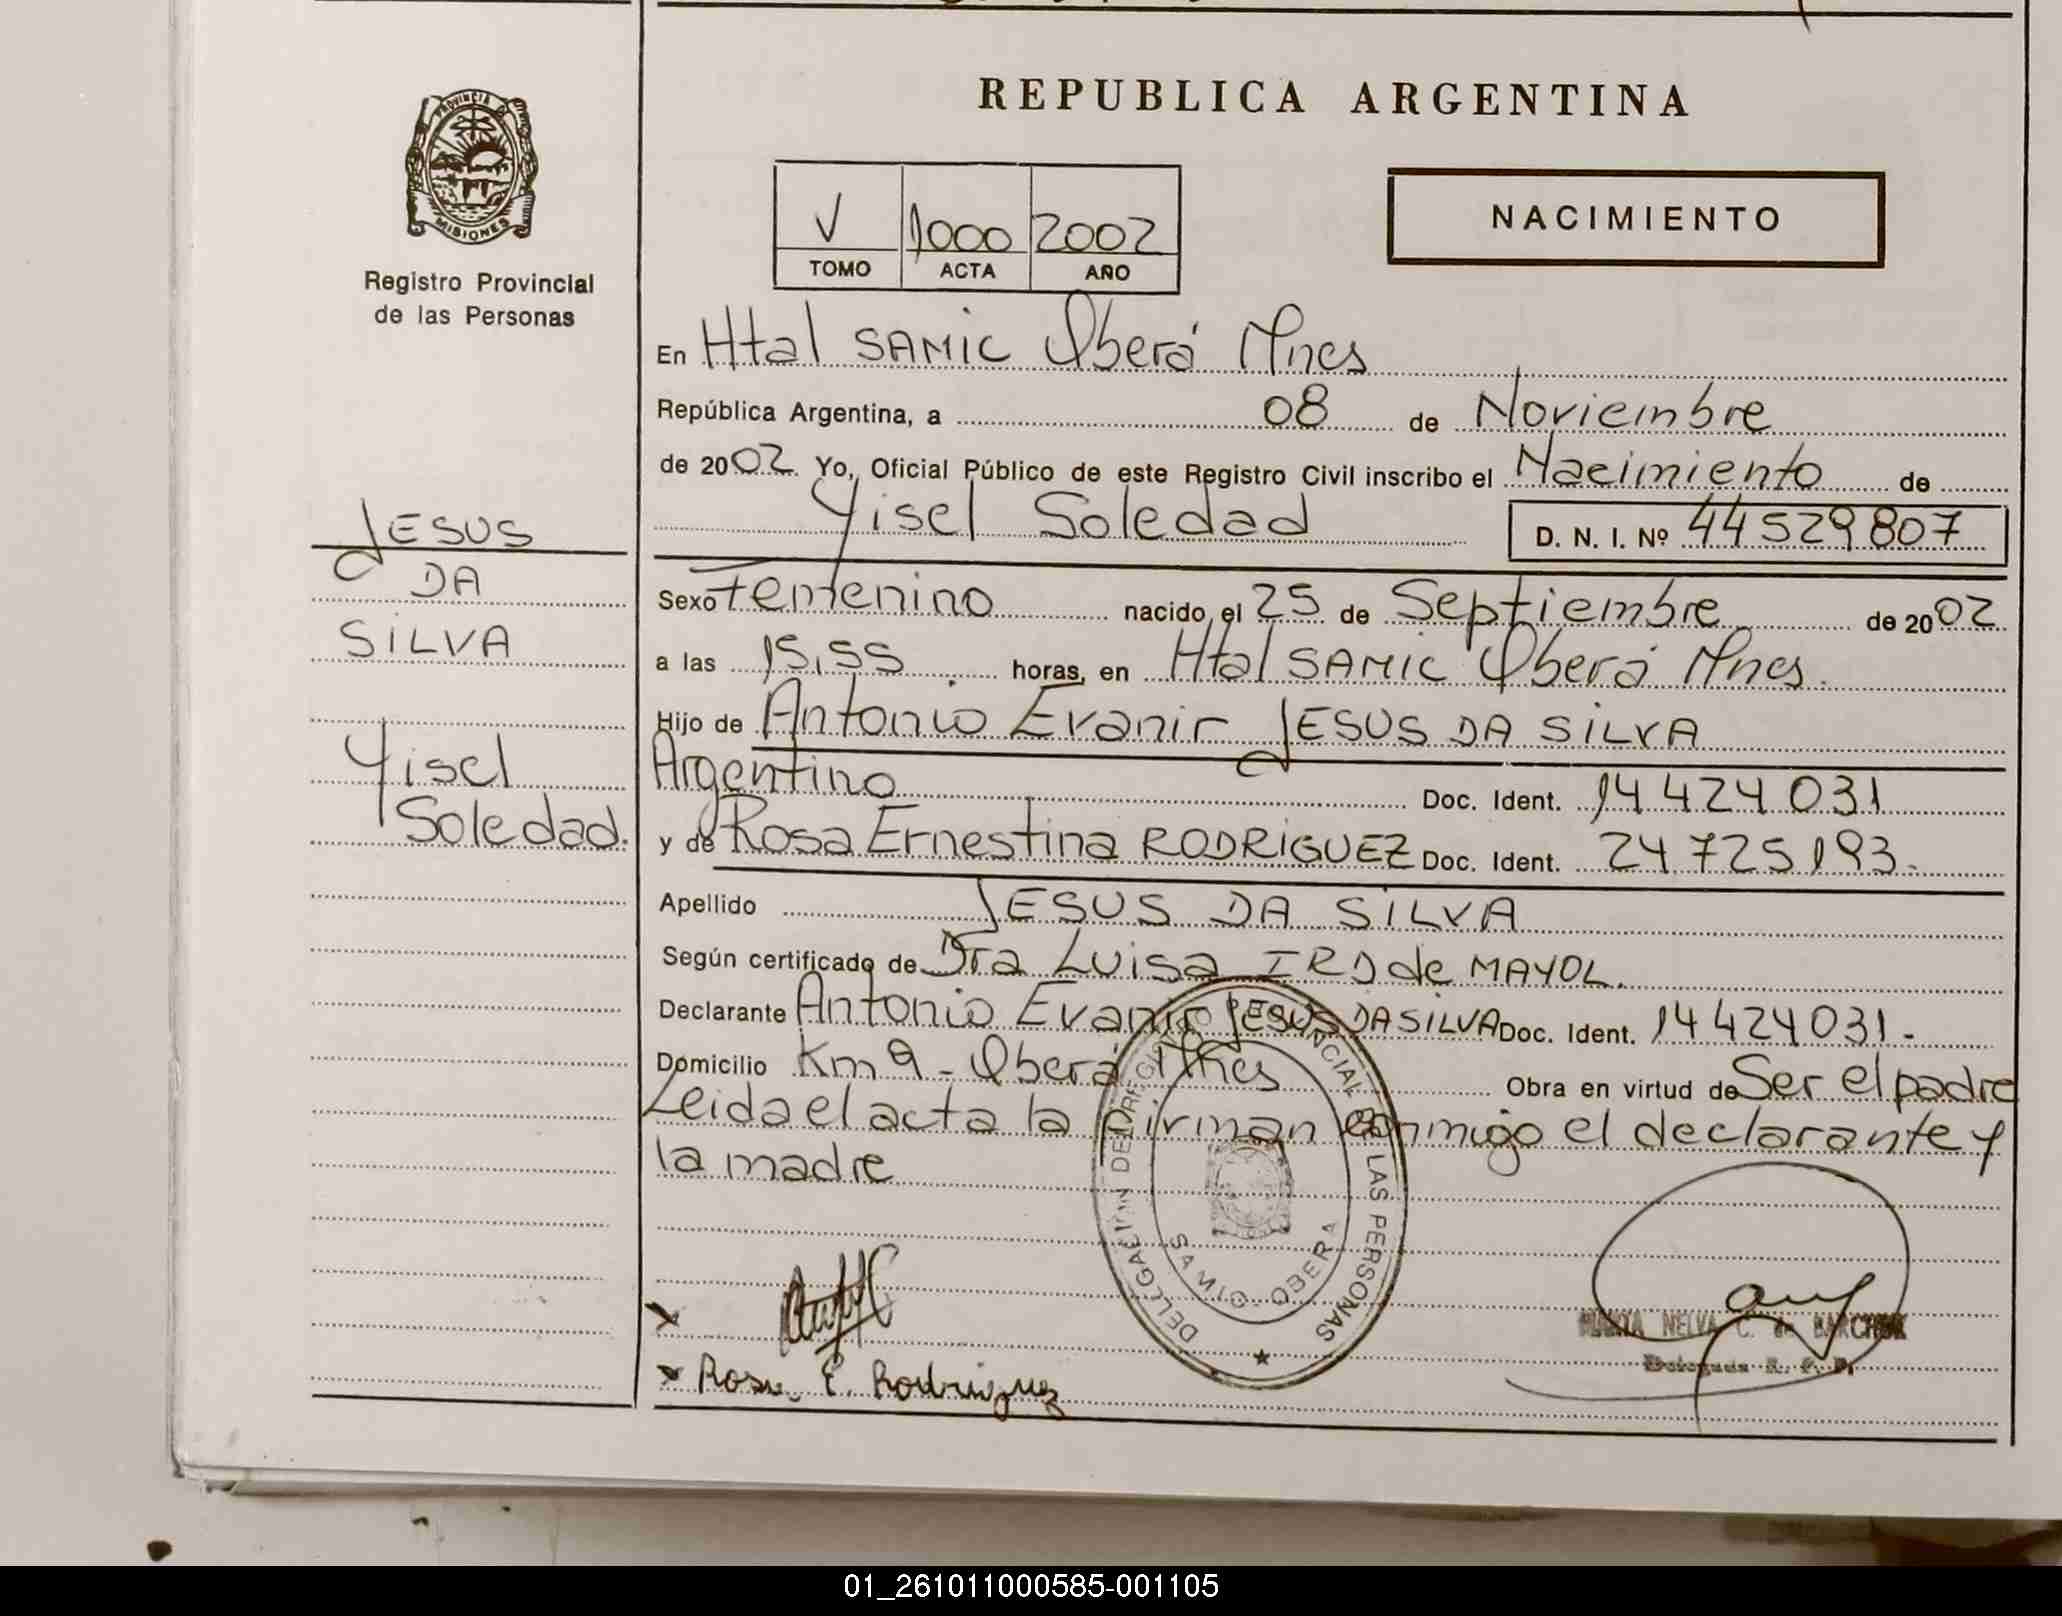 REPUBLICA ARGENTINA
PROVINCIA DE MISIONES
Registro Provincial
de las Personas
V 1000 2002
TOMO ACTA AÑO
NACIMIENTO
En Htal SAMIC Oberá Mnes
República Argentina, a 08 de Noviembre
de 2002. Yo, Oficial Público de este Registro Civil inscribo el Nacimiento de
Yisel Soledad D. N. I. Nº 44529807
JESUS
DA
SILVA
Yisel
Soledad.
Sexo Femenino nacido el 25 de Septiembre de 2002
a las 15,55 horas, en Htal SAMIC Oberá Mnes.
Hijo de Antonio Evanir JESUS DA SILVA
Argentino Doc. Ident. 14424031
y de Rosa Ernestina RODRIGUEZ Doc. Ident. 24725193.
Apellido JESUS DA SILVA
Según certificado de Dra Luisa IRD de MAYOL.
Declarante Antonio Evanir JESUS DA SILVA Doc. Ident. 14424031.-
Domicilio Km 9 - Oberá Mnes Obra en virtud de Ser el padre
Leida el acta la firman conmigo el declarante y
la madre
DELEGACION DEL REGISTRO PROVINCIAL DE LAS PERSONAS
SAMIC - OBERA
x
x Rosa E. Rodriguez
NELVA C. de
Delegada R. P. P.
01_261011000585-001105